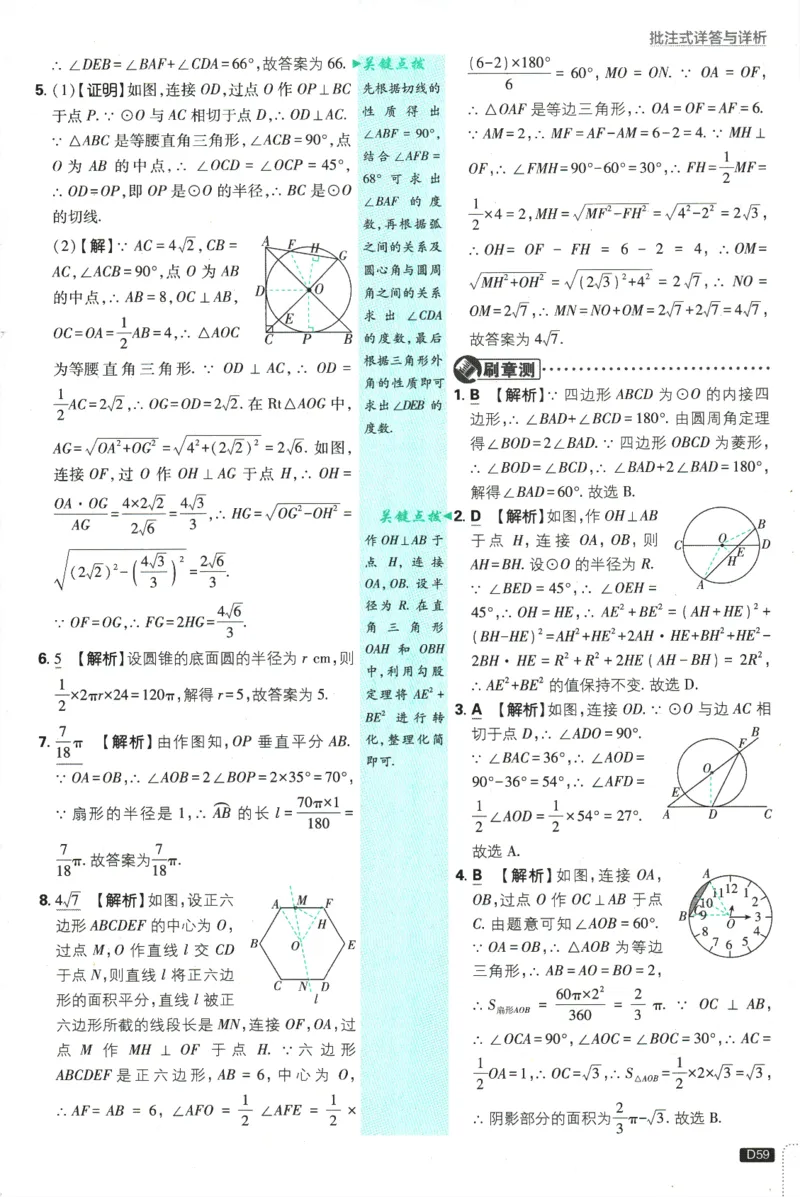 批注式详答与详析
∴ ∠DEB=∠BAF+∠CDA=66°,故答案为 66.
5. (1)【证明】如图,连接 OD,过点 O 作 OP⊥BC
于点 P.∵ ⊙O 与 AC 相切于点 D,∴ OD⊥AC.
∵ △ABC 是等腰直角三角形,∠ACB=90°,点
O 为 AB 的中点,∴ ∠OCD = ∠OCP = 45°,
∴ OD=OP,即 OP 是⊙O 的半径,∴ BC 是⊙O
的切线.
(2)【解】∵ AC=4√2,CB=
AC,∠ACB=90°,点 O 为 AB
的中点,∴ AB=8,OC⊥AB,
OC=OA=1/2AB=4,∴ △AOC
A F H G D O E C P B
为等腰直角三角形. ∵ OD ⊥ AC,∴ OD =
1/2AC=2√2,∴ OG=OD=2√2. 在 Rt△AOG 中,
AG=√(OA²+OG²)=√(4²+(2√2)²)=2√6. 如图,
连接 OF,过 O 作 OH⊥AG 于点 H,∴ OH=
OA·OG/AG=4×2√2/2√6=4√3/3,∴ HG=√(OG²-OH²)=
√((2√2)²-(4√3/3)²)=2√6/3.
∵ OF=OG,∴ FG=2HG=4√6/3.
6. 5 【解析】设圆锥的底面圆的半径为 r cm,则
1/2×2πr×24=120π,解得 r=5,故答案为 5.
7. 7/18π 【解析】由作图知,OP 垂直平分 AB.
∵ OA=OB,∴ ∠AOB=2∠BOP=2×35°=70°,
∵ 扇形的半径是 1,∴ AB⌒ 的长 l=70π×1/180=
7/18π. 故答案为7/18π.
8. 4√7 【解析】如图,设正六
边形 ABCDEF 的中心为 O,
过点 M,O 作直线 l 交 CD
于点 N,则直线 l 将正六边
形的面积平分,直线 l 被正
A M F H B O E C N D l
六边形所截的线段长是 MN,连接 OF,OA,过
点 M 作 MH ⊥ OF 于点 H. ∵六边形
ABCDEF 是正六边形, AB = 6, 中心为 O,
∴ AF= AB = 6, ∠AFO = 1/2 ∠AFE = 1/2 ×
关键点拨
先根据切线的
性质得出
∠ABF = 90°,
结合∠AFB=
68° 可求出
∠BAF 的度
数,再根据弧
之间的关系及
圆心角与圆周
角之间的关系
求出 ∠CDA
的度数,最后
根据三角形外
角的性质即可
求出∠DEB 的
度数.
关键点拨
作 OH⊥AB 于
点 H, 连接
OA,OB. 设半
径为 R. 在直
角三角形
OAH 和 OBH
中,利用勾股
定理将 AE²+
BE² 进行转
化,整理化简
即可.
(6-2)×180°/6 = 60°, MO = ON. ∵ OA = OF,
∴ △OAF 是等边三角形,∴ OA=OF=AF=6.
∵ AM=2,∴ MF=AF-AM=6-2=4. ∵ MH⊥
OF,∴ ∠FMH=90°-60°=30°,∴ FH=1/2MF=
1/2×4=2,MH=√(MF²-FH²)=√(4²-2²)=2√3,
∴ OH= OF - FH = 6 - 2 = 4, ∴ OM=
√(MH²+OH²)=√((2√3)²+4²)=2√7,∴ NO =
OM=2√7,∴ MN=NO+OM=2√7+2√7=4√7,
故答案为 4√7.
刷章测
1. B 【解析】∵ 四边形 ABCD 为⊙O 的内接四
边形,∴ ∠BAD+∠BCD=180°. 由圆周角定理
得∠BOD=2∠BAD. ∵ 四边形 OBCD 为菱形,
∴ ∠BOD=∠BCD,∴ ∠BAD+2∠BAD=180°,
解得∠BAD=60°. 故选 B.
2. D 【解析】如图,作 OH⊥AB
于点 H, 连接 OA, OB, 则
AH=BH. 设⊙O 的半径为 R.
∵ ∠BED = 45°,∴ ∠OEH =
C O B E D H A
45°,∴ OH=HE,∴ AE²+BE²=(AH+HE)²+
(BH-HE)²=AH²+HE²+2AH·HE+BH²+HE²-
2BH·HE=R²+R²+2HE(AH-BH)=2R²,
∴ AE²+BE² 的值保持不变. 故选 D.
3. A 【解析】如图,连接 OD. ∵ ⊙O 与边 AC 相
切于点 D,∴ ∠ADO=90°.
∵ ∠BAC=36°,∴ ∠AOD=
90°-36°=54°,∴ ∠AFD=
1/2∠AOD=1/2×54°=27°.
故选 A.
B F O E A D C
4. B 【解析】如图,连接 OA,
OB,过点 O 作 OC⊥AB 于点
C. 由题意可知∠AOB=60°.
∵ OA=OB,∴ △AOB 为等边
三角形,∴ AB=AO=BO=2,
A B O 12 1 2 3 4 5 6 7 8 9 10 11
∴ S扇形AOB = 60π×2²/360 = 2/3π. ∵ OC ⊥ AB,
∴ ∠OCA=90°,∠AOC=∠BOC=30°,∴ AC=
1/2OA=1,∴ OC=√3,∴ S△AOB=1/2×2×√3=√3,
∴ 阴影部分的面积为2/3π-√3. 故选 B.
D59